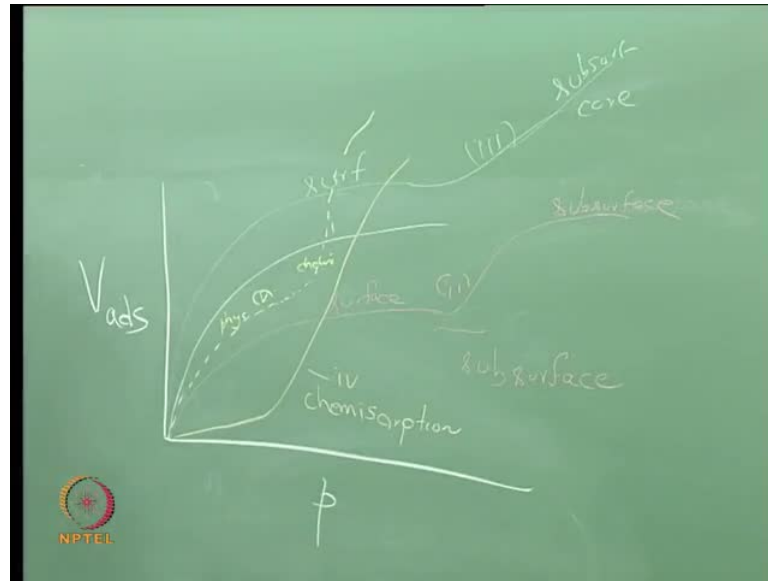 subsurf
core
(111)
surf
subsurface
V ads
phys
surface
(11)
subsurface
iv
chemisorption
p
NPTEL